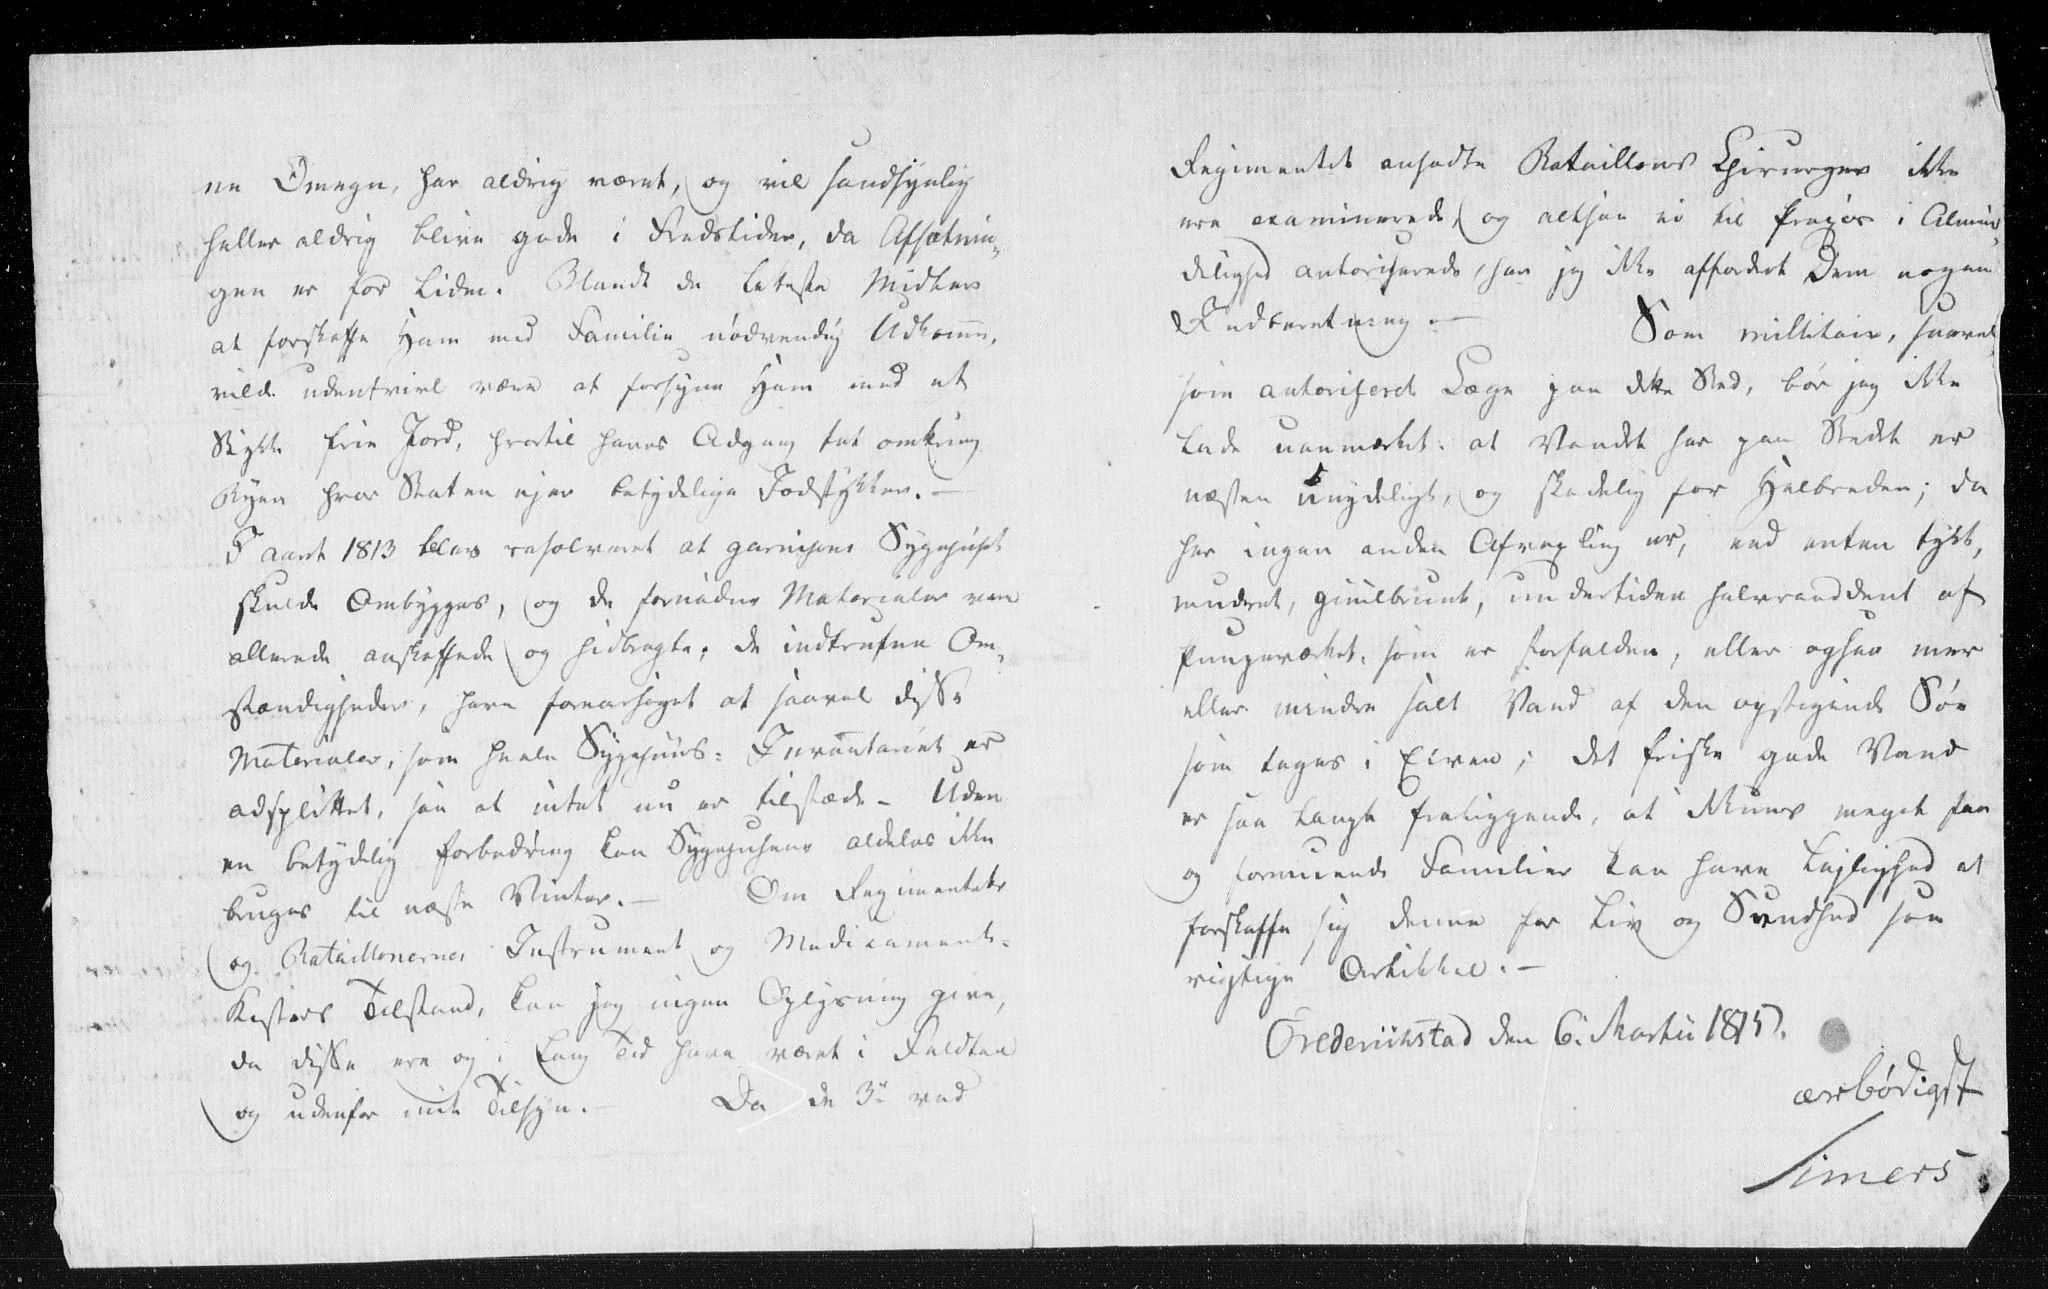 ne Omegn, har aldrig været, og vil sandsynlig
heller aldrig blive gode i Fredstider, da Afsætnin-
gen er for liden. Blandt de letteste Midler
at forskaffe Ham med Familie nødvendig Udkomme,
vilde udentvivl være at forsyne Ham med et
Stykke frie Jord, hvortil haves Adgang tæt omkring
Byen hvor Staten ejer betydelige Jodstykker. –
I aaret 1813 blev resolveret at garnisons Sygehuset
skulde Ombygges, og de fornødne Materialer vare
allerede anskaffede og hidbragte; de indtrufne Om-
stændigheder, have foraarsaget at saavel disse
Materialer, som heele Sygehuus-Inventariet er
adsplittet, saa at intet nu er tilstæde – Uden
en betydelig forbedring kan Sygehusene aldeles ikke
bruges til næste Vinter. – Om Regimentets
og Bataillonernes Instrument og Medicament-
Kisters Tilstand, kan jeg ingen Oplysning give,
da disse ere og i lang Tid have været i Feldten
og udenfor mit Tilsyn. – Da de 3de ved
Regimentet ansadte Bataillons Chirurger ikke
ere examinerede, og altsaa ei til praxis i Almin-
delighed autoriserede, har jeg ikke affordret Dem nogen
Indberetning. – Som millitair, saavel
som autoriseret Læge paa dette Sted, bør jeg ikke
lade uanmærket: at Vandet her paa Stedet er
næsten unydeligt, og skadelig for Helbreden; da
her ingen anden Afvexling er, end enten tykt,
mudret, guulbrunt, undertiden halvraaddent af
Pumpeværket, som er forfalden, eller ogsaa mer
eller mindre salt Vand af den opstigende Søe
som tages i Elven; det friske gode Vand
er saa langt fraliggende, at ikkuns meget faa
og formuende Familier kan have Lejlighed at
forskaffe sig denne for Liv og Sundhed saa
vigtige Artikkel. –
Frederikstad den 6: Martii 1815.
ærbødigst
Simers